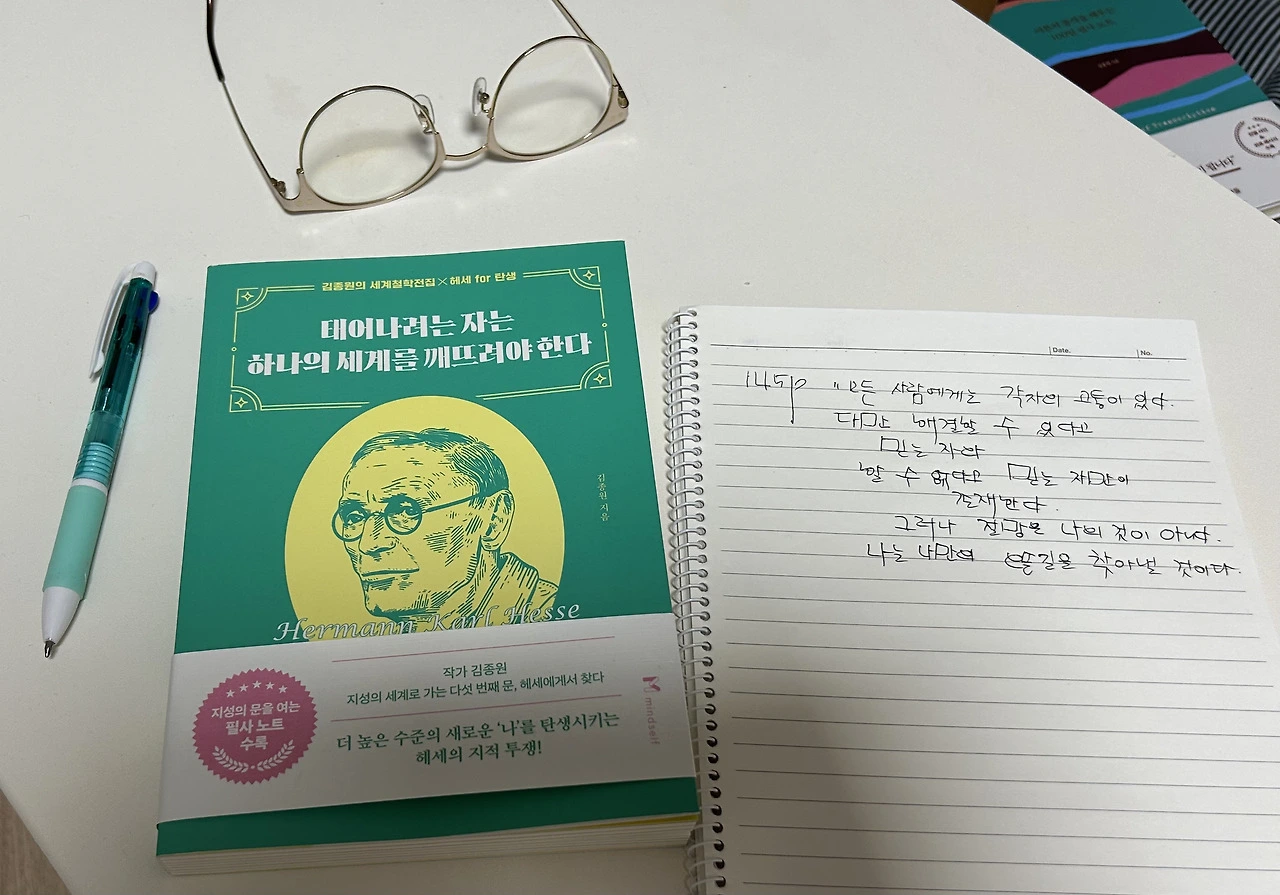 김종원의 세계철학전집×헤세 for 탄생
태어나려는 자는
하나의 세계를 깨뜨려야 한다
김종원 지음
Hermann Karl Hesse
작가 김종원
지성의 세계로 가는 다섯 번째 문, 헤세에게서 찾다
더 높은 수준의 새로운 ‘나’를 탄생시키는
헤세의 지적 투쟁!
지성의 문을 여는
필사 노트
수록
mindself
Date.
No.
145p "모든 사람에게는 각자의 고통이 있다.
다만 해결할 수 있다고
믿는 자와
할 수 없다고 믿는 자만이
존재한다.
그러나 절망은 나의 것이 아니다.
나는 나만의 샛길을 찾아낼 것이다.
100일 필사 노트